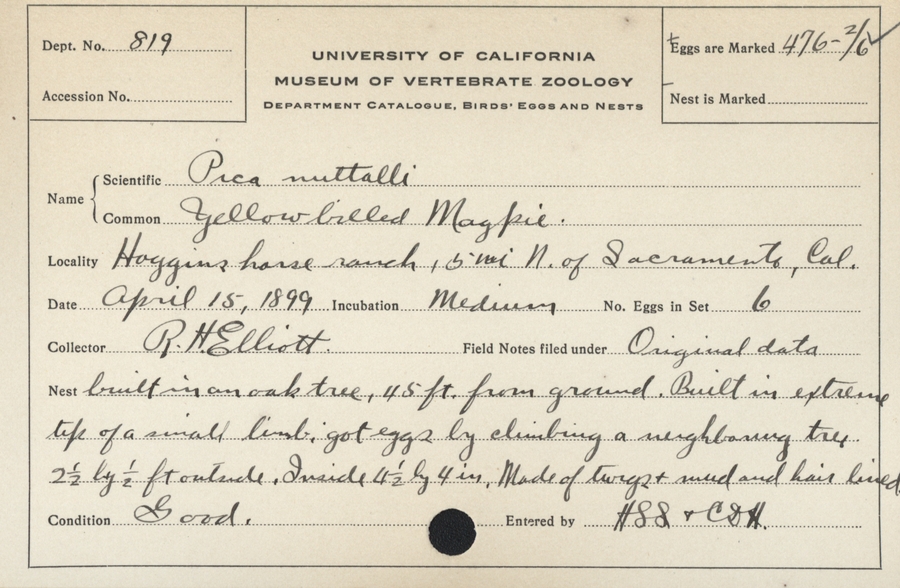 Dept. No. 819
UNIVERSITY OF CALIFORNIA
MUSEUM OF VERTEBRATE ZOOLOGY
DEPARTMENT CATALOGUE, BIRDS' EGGS AND NESTS
Eggs are Marked 476-2/6
Accession No.
Nest is Marked
Name
Scientific Pica nuttalli
Common Yellow billed Magpie.
Locality Hoggins horse ranch, 5 mi N. of Sacramento, Cal.
Date April 15, 1899 Incubation Medium No. Eggs in Set 6
Collector R.H. Elliott. Field Notes filed under Original data
Nest built in an oak tree, 45 ft. from ground. Built in extreme
tip of a small limb; got eggs by climbing a neighboring tree
2½ by ½ ft outside. Inside 4½ by 4 in. Made of twigs + mud and hair lined
Condition Good. Entered by HSS + CDH.